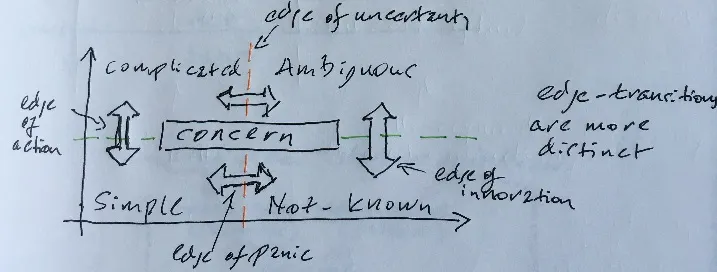 edge of uncertanty
complicated Ambiguous
edge
of
action
concern
edge-transitions
are more
distinct
edge of
innovation
Simple Not-known
edge of panic